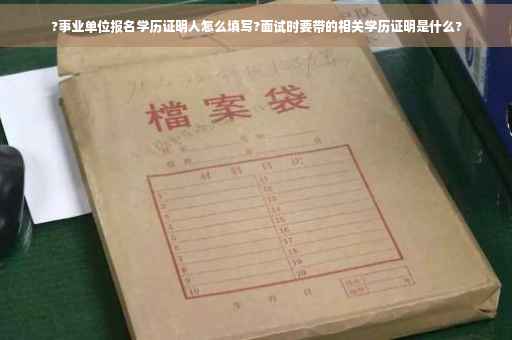 ?事业单位报名学历证明人怎么填写?面试时要带的相关学历证明是什么?
檔案袋
材料目次
1 11
2 12
3 13
4 14
5 15
6 16
7 17
8 18
9 19
10 20
年 月 日